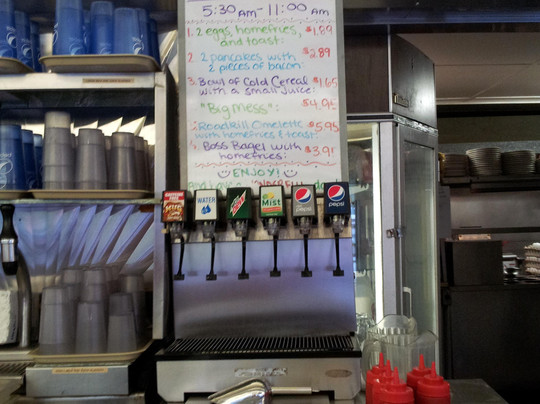 5:30 AM - 11:00 AM
1. 2 eggs, homefries, $1.89
and toast:
2. 2 pancakes with $2.89
2 pieces of bacon:
3. Bowl of Cold Cereal $1.65
with a small Juice:
"Big Mess": $4.95
Roadkill Omelette $5.95
with homefries & toast:
Boss Bagel with $3.95
homefries:
ENJOY!
and have a
WATER
Mist
pepsi
pepsi